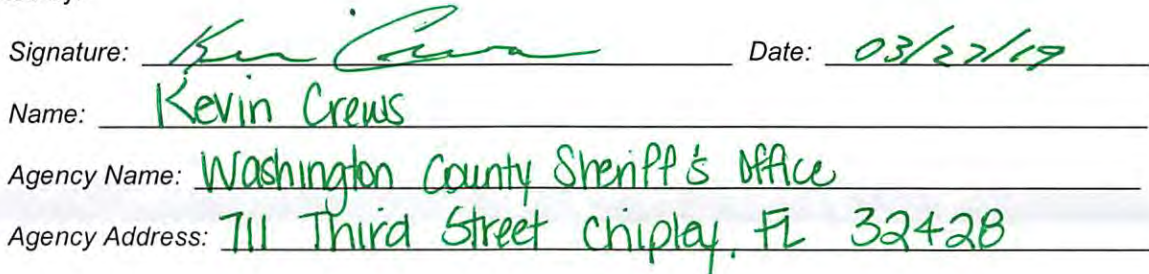 Signature: Kevin Crews Date: 03/27/19
Name: Kevin Crews
Agency Name: Washington County Sheriff's Office
Agency Address: 711 Third Street Chipley, FL 32428